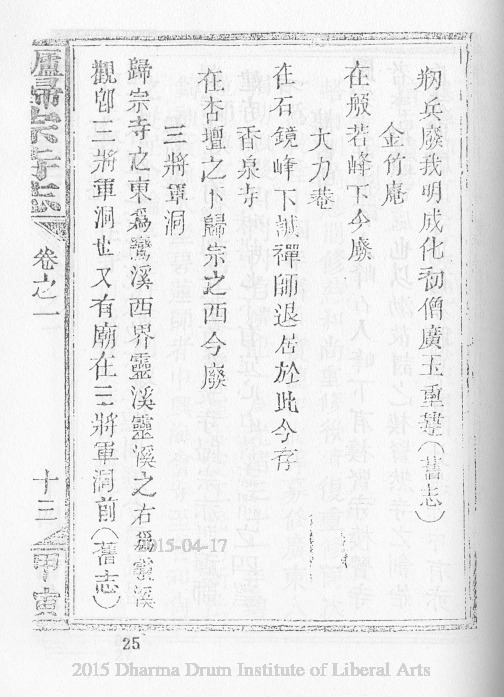 初兵廢我明成化初僧廣玉重建(舊志)
金竹庵
在般若峰下今廢
大力菴
在石鏡峰下誠禪師退居於此今存
香泉寺
在杏壇之下歸宗之西今廢
三將軍洞
歸宗寺之東爲鸞溪西界靈溪靈溪之右爲靈溪
觀卽三將軍洞也又有廟在三將軍洞前(舊志)
廬歸宗寺志
卷之一
十三
甲寅
2015-04-17
25
2015 Dharma Drum Institute of Liberal Arts